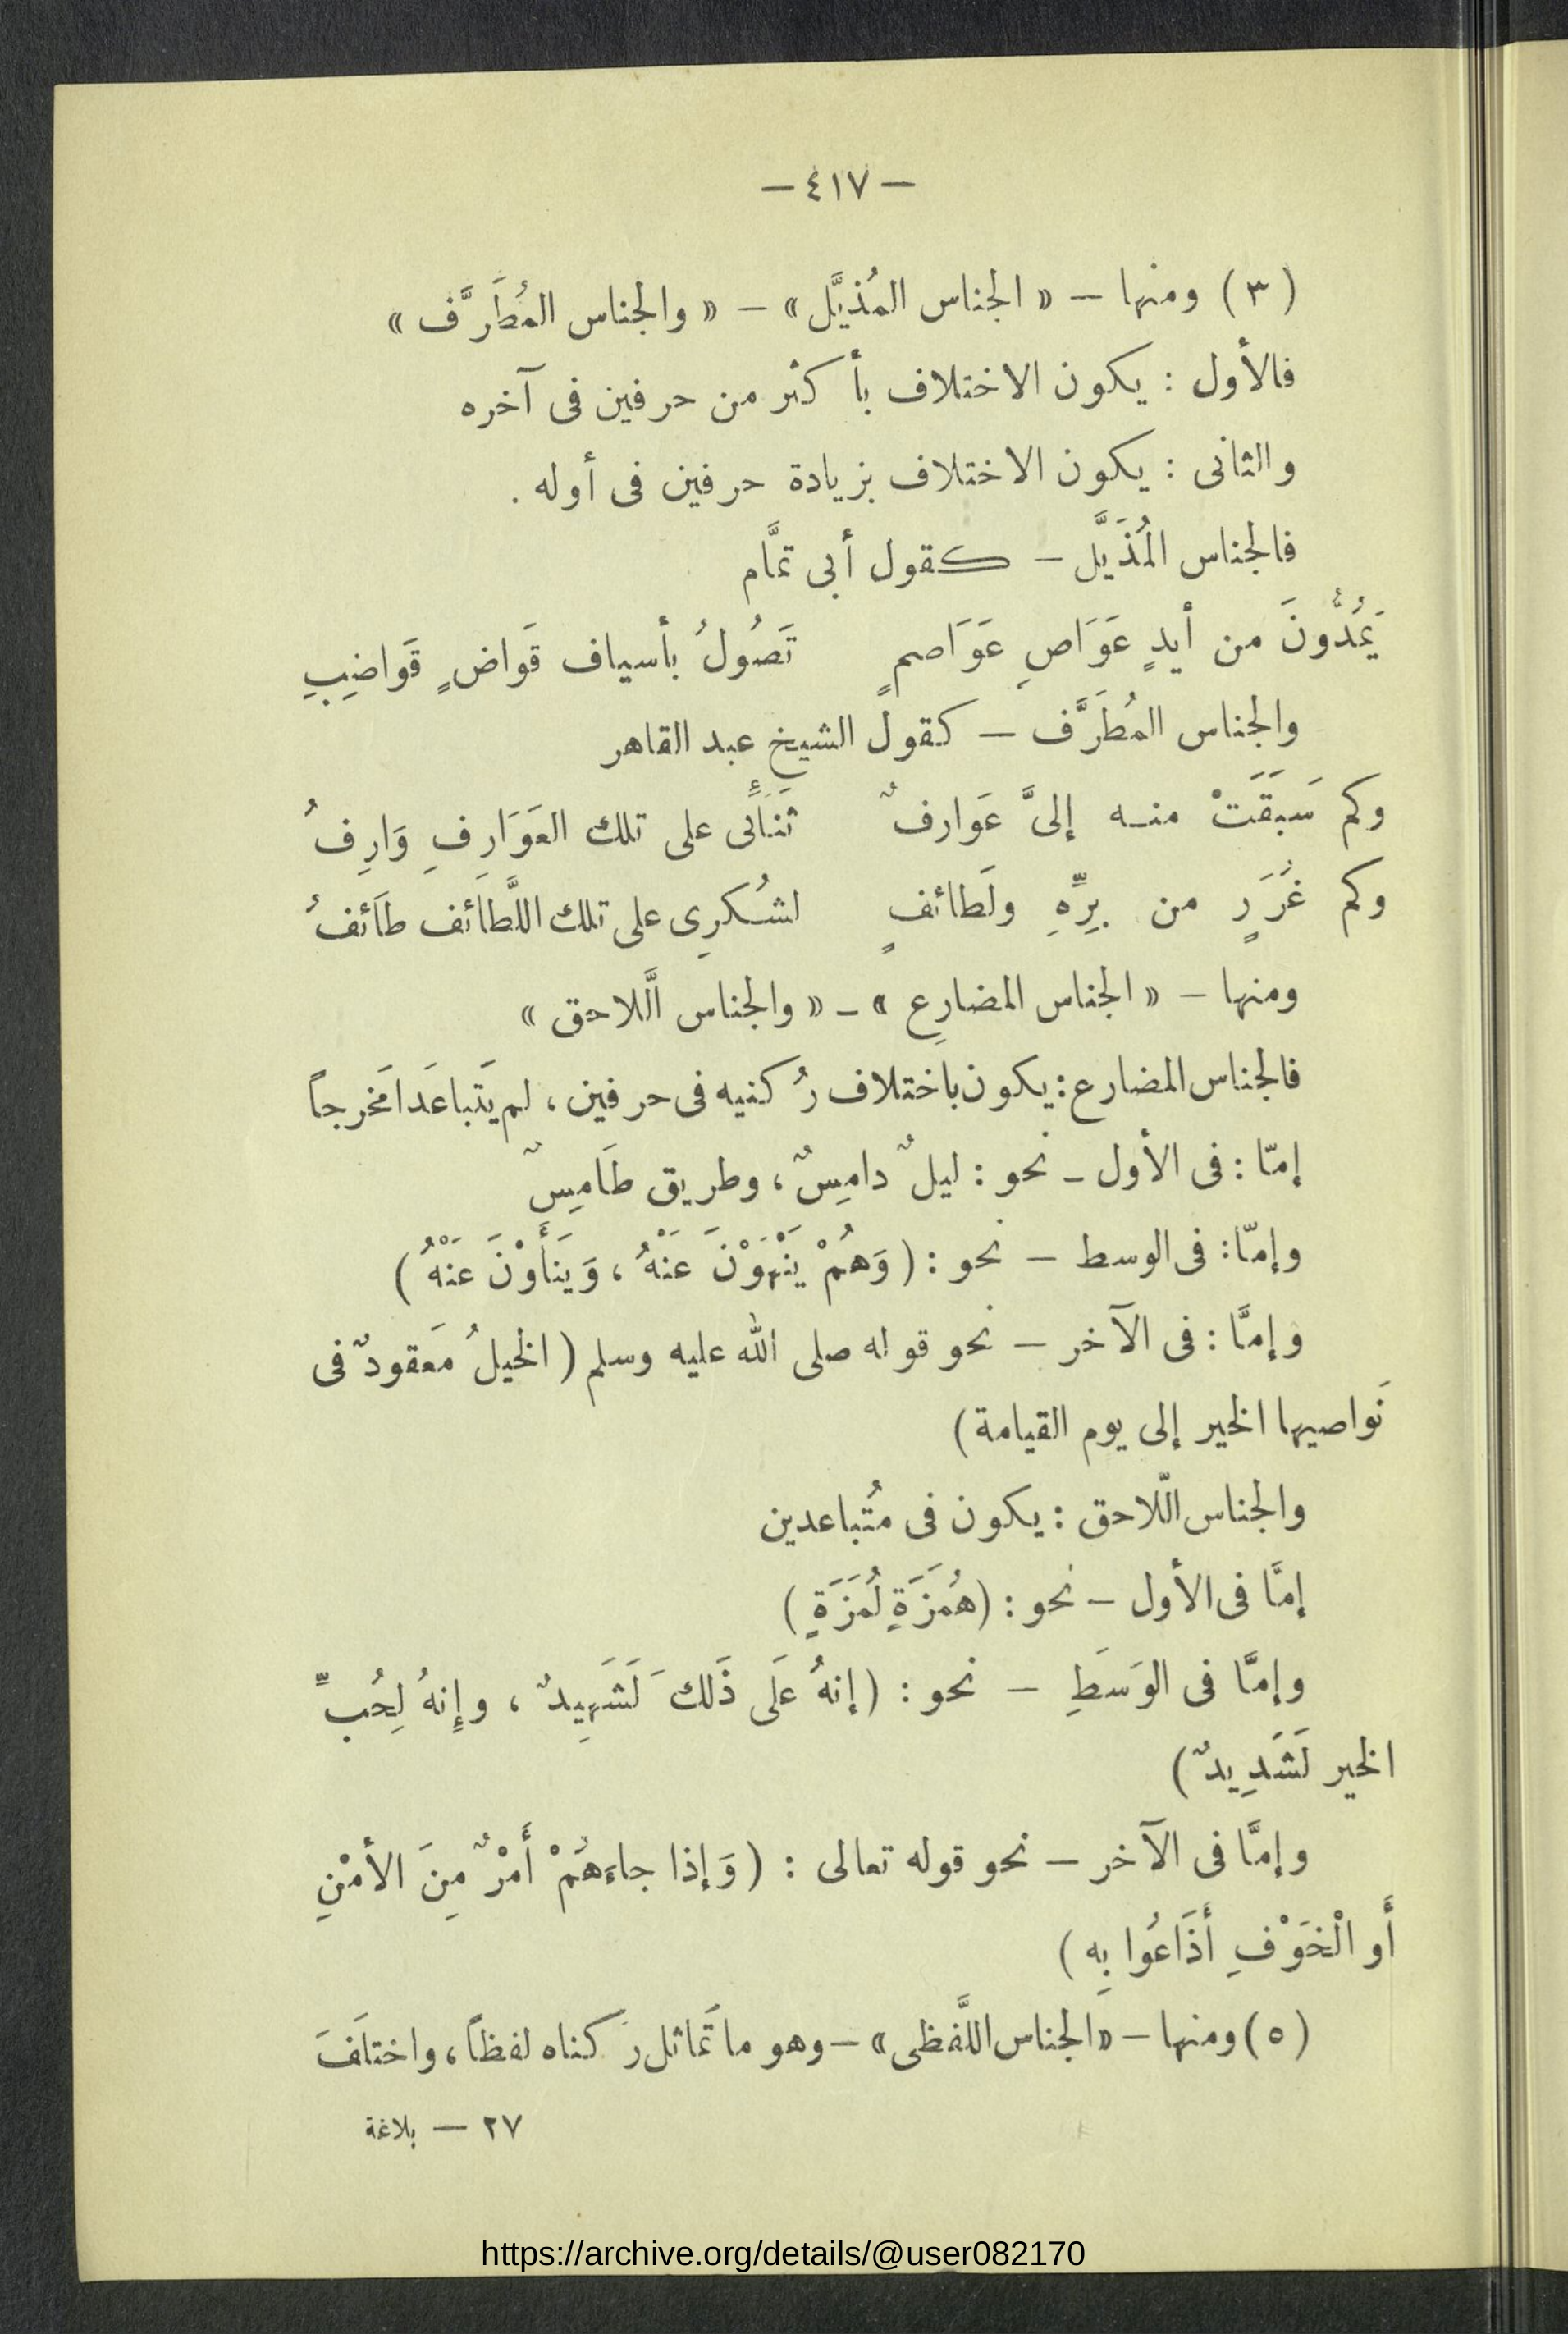 — ٤١٧ —
( ٣ ) ومنها — « الجناس المُذيَّل » — « والجناس المُطَرَّف »
فالأول : يكون الاختلاف بأكثر من حرفين فى آخره
والثانى : يكون الاختلاف بزيادة حرفين فى أوله .
فالجناس المُذَيَّل — كقول أبى تمَّام
يَمُدُّونَ من أيدٍ عَوَاصٍ عَوَاصمٍ تَصُولُ بأسياف قَواضٍ قَواضِبِ
والجناس المُطَرَّف — كقول الشيخ عبد القاهر
وكم سَبَقَتْ منه إلىَّ عَوارفٌ ثَنَائى على تلك العَوَارِفِ وَارِفُ
وكم غُرَرٍ من بِرِّهِ ولَطائفٍ لشُكرِى على تلك اللَّطَائف طَائفُ
ومنها — « الجناس المضارِع » ـ « والجناس الَّلاحق »
فالجناس المضارع : يكون باختلاف رُكنيه فى حرفين ، لم يَتباعَدَا مَخرجاً
إمّا : فى الأول ـ نحو : ليلٌ دامِسٌ ، وطريق طَامِسٌ
وإمّا : فى الوسط — نحو : ( وَهُمْ يَنْهَوْنَ عَنْهُ ، وَيَنَأَوْنَ عَنْهُ )
وإمَّا : فى الآخر — نحو قوله صلى الله عليه وسلم ( الخيلُ مَعقودٌ فى
نَواصيها الخير إلى يوم القيامة )
والجناس الّلاحق : يكون فى مُتباعدين
إمَّا فى الأول — نحو : ( هُمَزَةٍ لُمَزَةٍ )
وإمَّا فى الوَسَطِ — نحو : ( إنهُ عَلَى ذَلكَ لَشَهِيدٌ ، وإِنهُ لِحُبِّ
الخير لَشَدِيدٌ )
وإمَّا فى الآخر — نحو قوله تعالى : ( وَإذا جاءَهُمْ أَمْرٌ مِنَ الأمْنِ
أَو الْخَوْفِ أَذَاعُوا بِه )
( ٥ ) ومنها — « الجناس اللَّفظى » — وهو ما تَماثل رَكناه لفظاً ، واختلَفَ
٢٧ — بلاغة
https://archive.org/details/@user082170